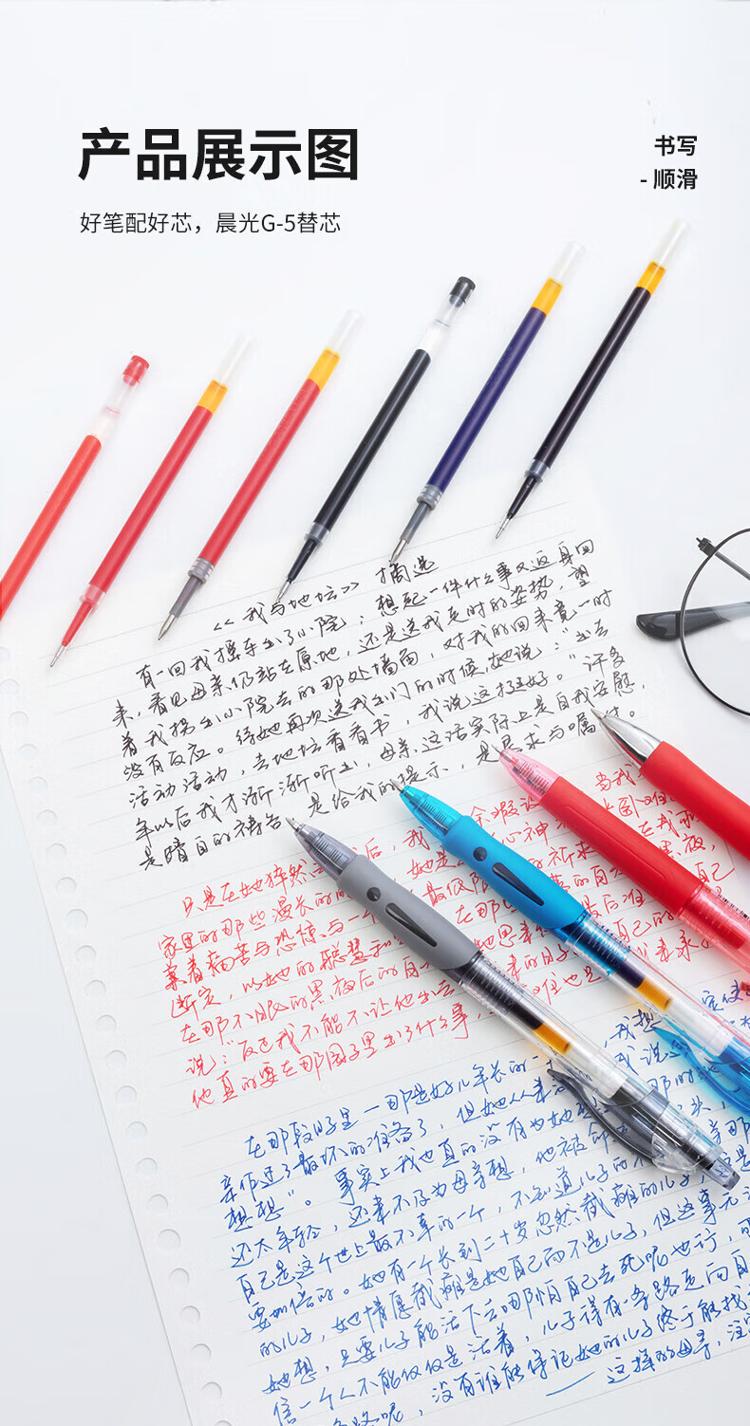 产品展示图
书写
- 顺滑
好笔配好芯，晨光G-5替芯
<<我与地坛>> 摘选
有一回我摇车出了小院；想起一件什么事又返身回
来，看见母亲仍站在原地，还是送我走时的姿势，望
着我拐出小院去的那处墙角，对我的回来竟一时
没有反应。待她再次送我出门的时候，她说："出去
活动活动，去地坛看看书，我说这挺好。"许多
年以后我才渐渐听出，母亲这话实际上是自我安慰，
是暗自的祷告，是给我的提示，是恳求与嘱咐。
只是在她猝然去世之后，我
家里的那些漫长的
兼着痛苦与惊恐与一个
断定，以她的聪慧和
在那不眠的黑夜后的白天
说："反正我不能不让他出去
他真的要在那园子里出了什么事，
在那段日子里——那是好几年长的一
亲作过了最坏的准备了，但她从来没
想想"。事实上我也真的没有为她想过
还太年轻，还来不及为母亲想，他被命
自己是这个世上最不幸的一个，不知道儿子的不
要加倍的。她有一个长到二十岁忽然截瘫的儿子，
的儿子，她情愿截瘫是她自己而不是儿子，但这事无
她想，只要儿子能活下去哪怕自己去死呢也行，可
信一个人不能仅仅是活着，儿子得有一条路走向自
没有谁能保证她的儿子终于能找
——这样的母亲，注